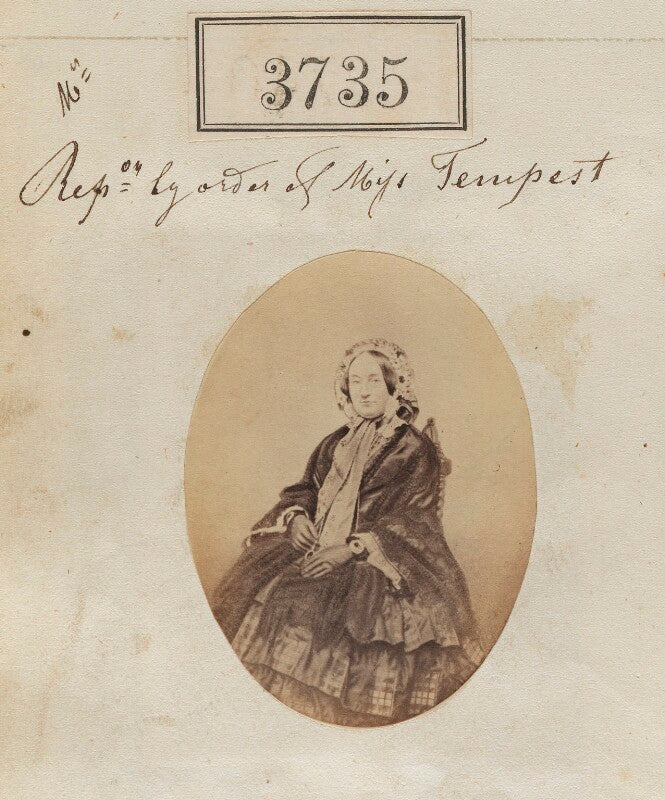 3735
Mrs
Repon by order of Miss Tempest